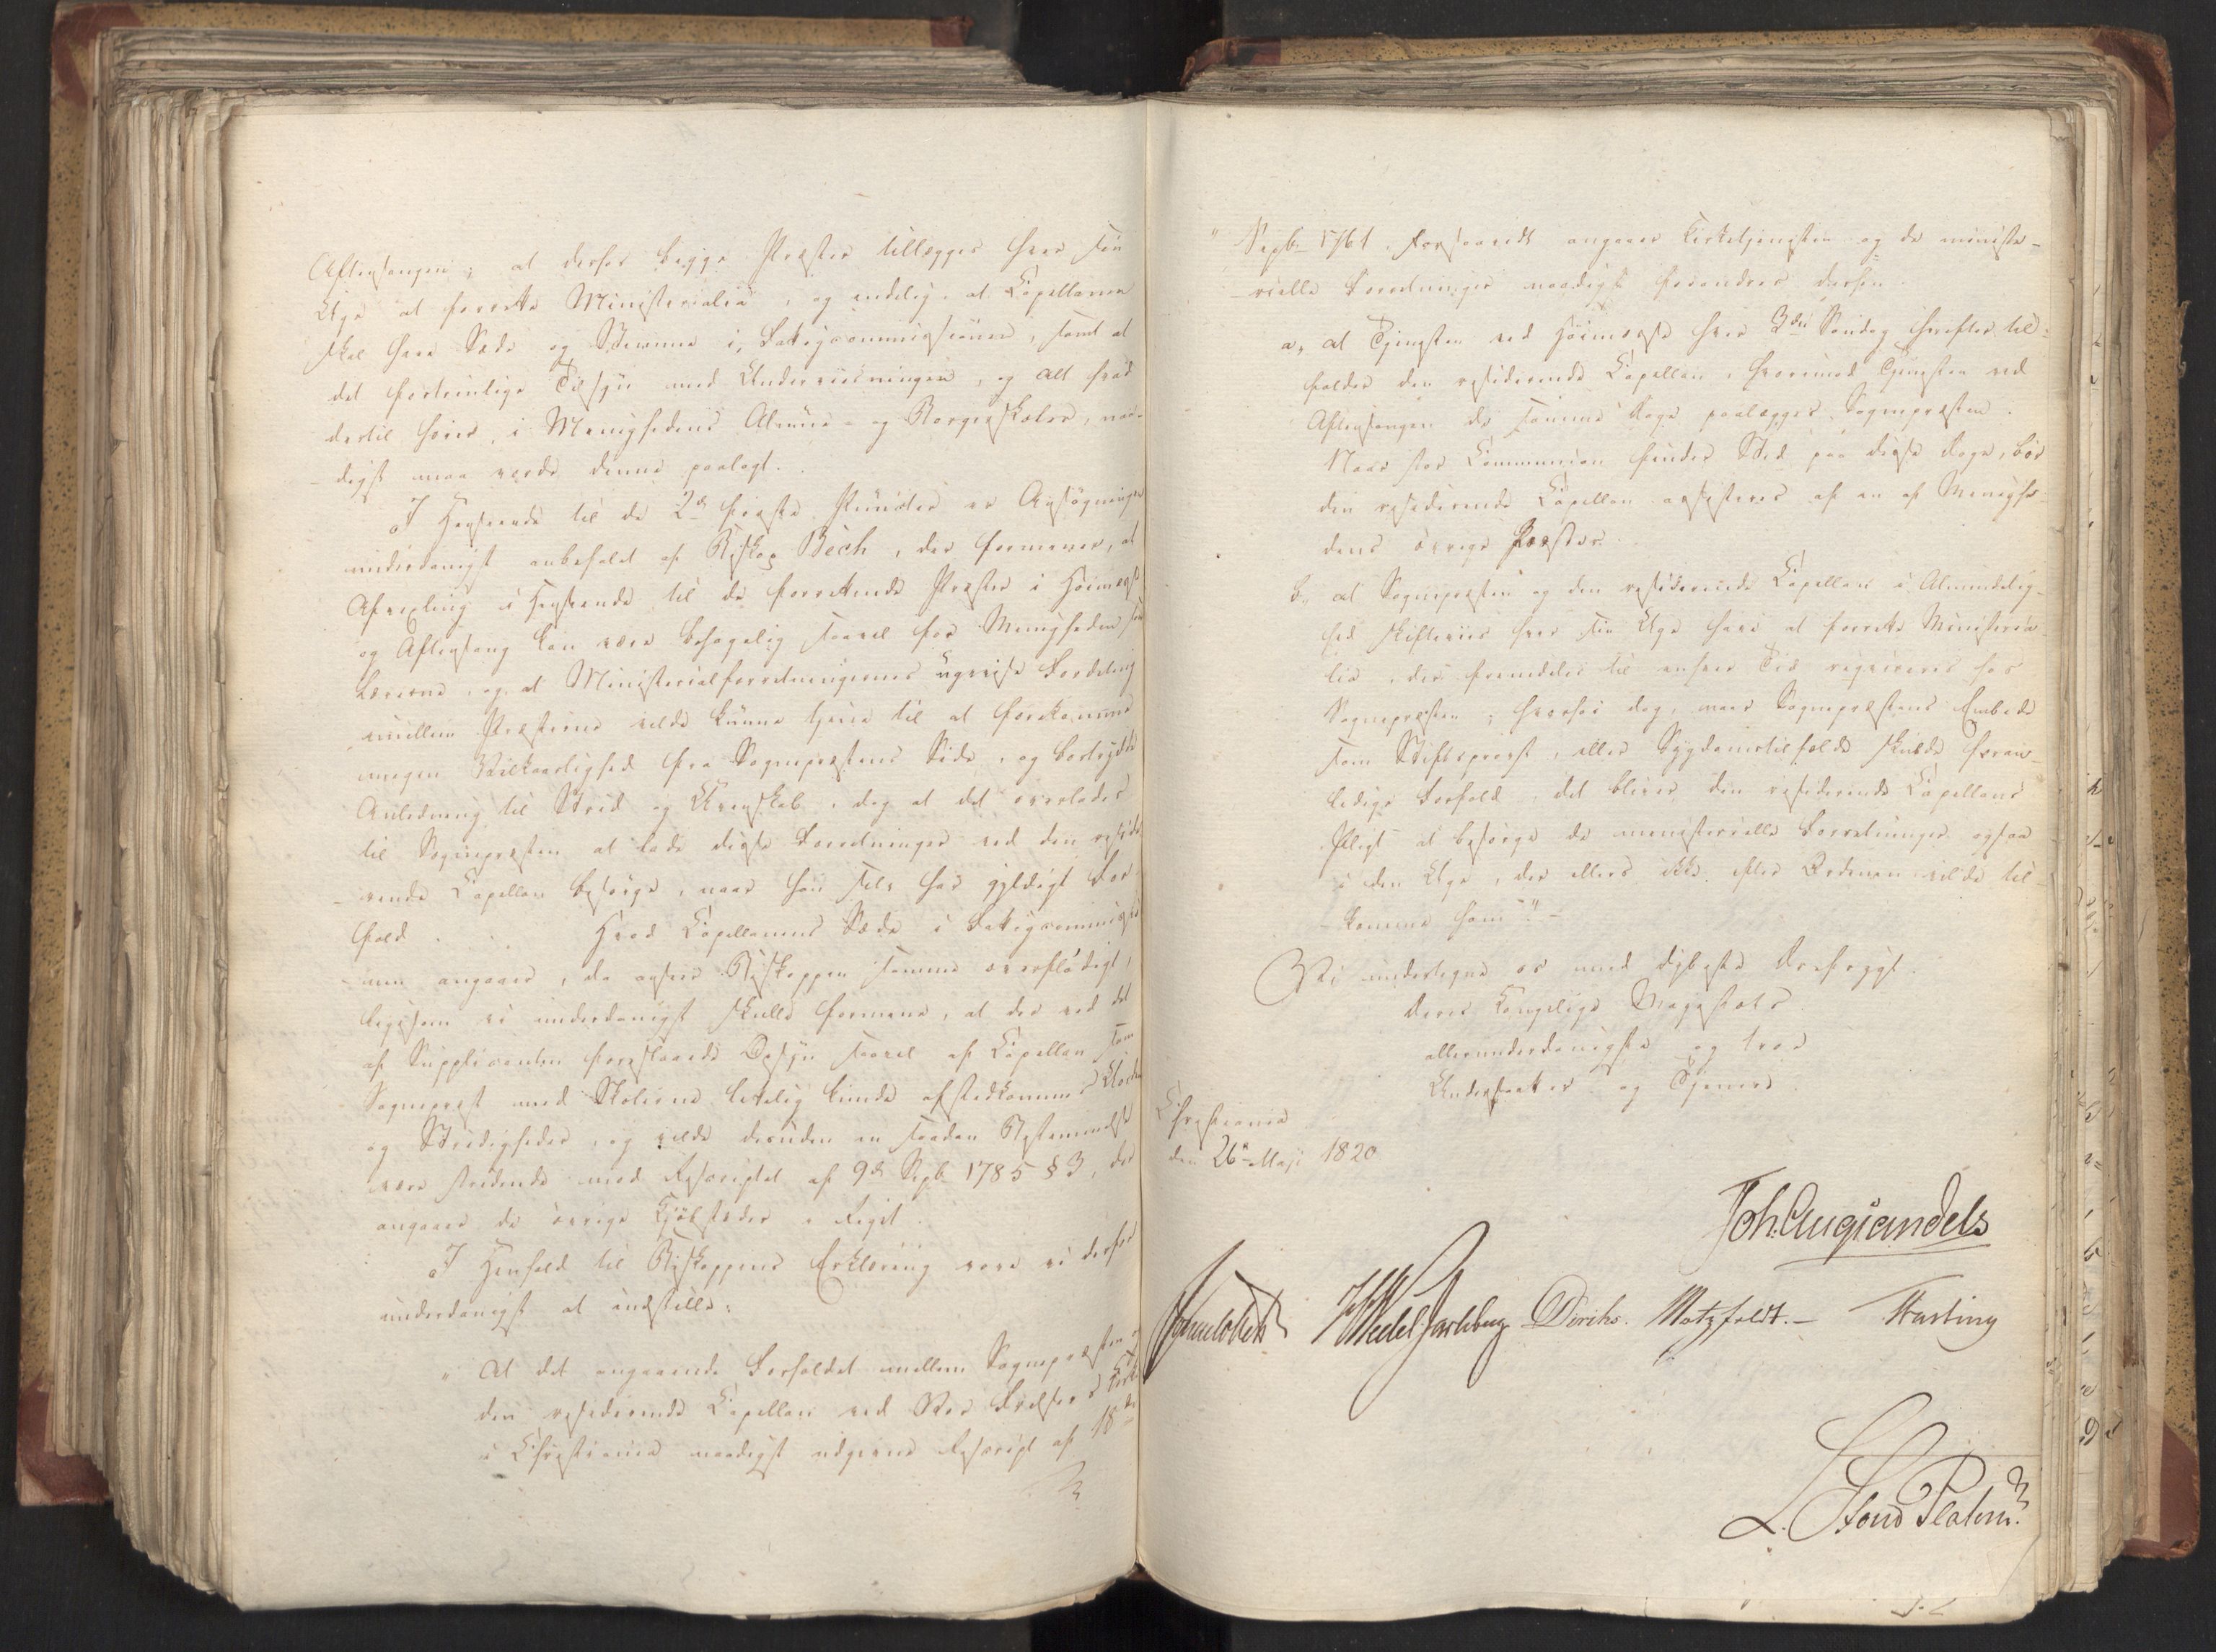 Aftensangen; at derfor begge Præster tillægges hver sin
Uge at forrette Ministerialia, og endelig at Capellanen
skal have Sæde og Stemme i Fattigcommissionen, samt at
det fortrinlige Tilsyn med Underviisningen, og alt hvad
dertil hører, i Menighedens Almue- og Borgerskoler, naa-
digst maa vorde denne paalagt.
I Henseende til de 2de første Puncter er Ansøgningen
underdanigst anbefalet af Biskop Bech, der formener, at
Afvexling i Henseende til de forrettende Præster i Høimesse
og Aftensang kan være behagelig saavel for Menigheden som
Lærerne, og at Ministerialforretningernes ugevise Fordeling
imellem Præsterne vilde kunne tjene til at forekomme
megen Vilkaarlighed fra Sognepræstens Side, og bortrydde
Anledning til Strid og Uvenskab, dog at det overlades
til Sognepræsten at lade disse Forretninger ved den reside-
rende Capellan besørge, naar han selv har gyldigt For-
fald. Hvad Capellanens Sæde i Fattigcommissio-
nen angaaer, da anseer Biskoppen samme overflødigt,
ligesom vi underdanigst skulle formene, at der ved det
af Supplicanten foreslaaede Opsyn saavel af Capellan som
Sognepræst med Skolerne letelig kunde afstedkommes Uorden
og Stridigheder, og vilde desuden en saadan Bestemmelse
være stridende mod Rescriptet af 9de Sepb. 1785 § 3, der
angaaer de øvrige Kjøbstæder i Riget.
I Henhold til Biskoppens Erklæring vove vi derfor
underdanigst at indstille:
" At det angaaende Forholdet imellem Sognepræsten og
den residerende Capellan ved Vor Frelsers Kirke
i Christiania naadigst udgivne Rescript af 18de
" Sepb. 1761, forsaavidt angaaer Kirketjenesten og de ministe-
rielle Forretninger naadigst forandres derhen:
a, at Tjenesten ved Høimesse hver 3die Søndag herefter til-
holdes den residerende Capellan, hvorimod Tjenesten ved
Aftensangen de samme Dage paalægges Sognepræsten.
Naar stor Communion finder Sted paa disse Dage, bør
den residerende Capellan assisteres af en af Menighe-
dens øvrige Præster.
b, at Sognepræsten og den residerende Capellan i Almindelig-
hed skifteviis hver sin Uge have at forrette Ministeria-
lia, der fremdeles til enhver Tid reqvireres hos
Sognepræsten; hvorhos dog, naar Sognepræstens Embede
som Stiftsprovst, eller Sygdomstilfælde skulde foran-
ledige Forfald, det bliver den residerende Capellans
Pligt at besørge de ministerielle Forretninger ogsaa
i den Uge, der ellers ikke efter Ordenen vilde til-
komme ham". -
Vi undertegne os med dybeste Ærefrygt.
Deres Kongelige Majestæts
allerunderdanigste og troe
Undersaatter og Tjenere.
Christiania
den 26de Maji 1820
Joh. Aug. Sandels
Sommerhielm HWedel Jarlsberg Diriks. Motzfeldt. - Fasting
L. Stoud Platou.